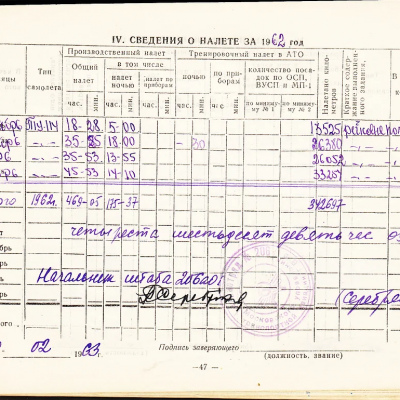 IV. СВЕДЕНИЯ О НАЛЕТЕ ЗА 1962 год
Производственный налет
Тренировочный налет в АТО
Тип самолета
Общий налет
в том числе
налет ночью
налет по приборам
ночью
по приборам
количество посадок по ОСП, ВУСП и МП-1
по миниму-му № 1
по миниму-му № 2
Налетано километров
Краткое содержание выполненного задания.
час. мин. час. мин. час. мин. час. мин. час. мин.
ТУ-114 18-28 5-00 13525
-„- 35-25 18-00 - 30 26380 -„-
-„- 35-53 13-55 26052 -„-
-„- 45-53 14-10 33251 -„-
1962г. 469-05 175-37 342697
четыреста шестьдесят девять час
Начальник штаба 206 ао:
(Серебр
02 1963 г.
Подпись заверяющего
(должность, звание)
— 47 —